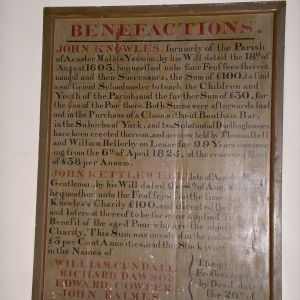 BENEFACTIONS.
JOHN KNOWLES, formerly of the Parish
of Acaster Malbis, Yeoman, by his Will dated the 18th of
August 1603, bequeathed unto four Feoffees therein
named and their Successors, the Sum of £100, to find
a sufficient Schoolmaster to teach the Children and
Youth of the Parish, and the further Sum of £30, for
the use of the Poor there. Both Sums were afterwards laid
out in the Purchase of a Close, without Bootham Bar,
in the Suburbs of York, and two Substantial Dwellinghouses
have been erected thereon, and are now held by Thomas Bell
and William Bellerby on Lease for 99 Years commen-
cing from the 6th of April 1823, at the reserved Rent
of £38 per Annum.
JOHN KETTLEWELL, late of Acaster
Gentleman, by his Will dated the of August
bequeathed unto the Feoffees for the time
Knowles's Charity £100, and directed the
and Interest thereof to be for ever applied
Benefit of the aged Poor who are the
Charity. This Sum was invested in the
£3 per Cent Annuities, and the Stock is now
in the Names of
WILLIAM CUNDALL
RICHARD DAWSON
EDWARD COWPER
JOHN
The present
Feoffees appointed
by Deed dated
the 20th